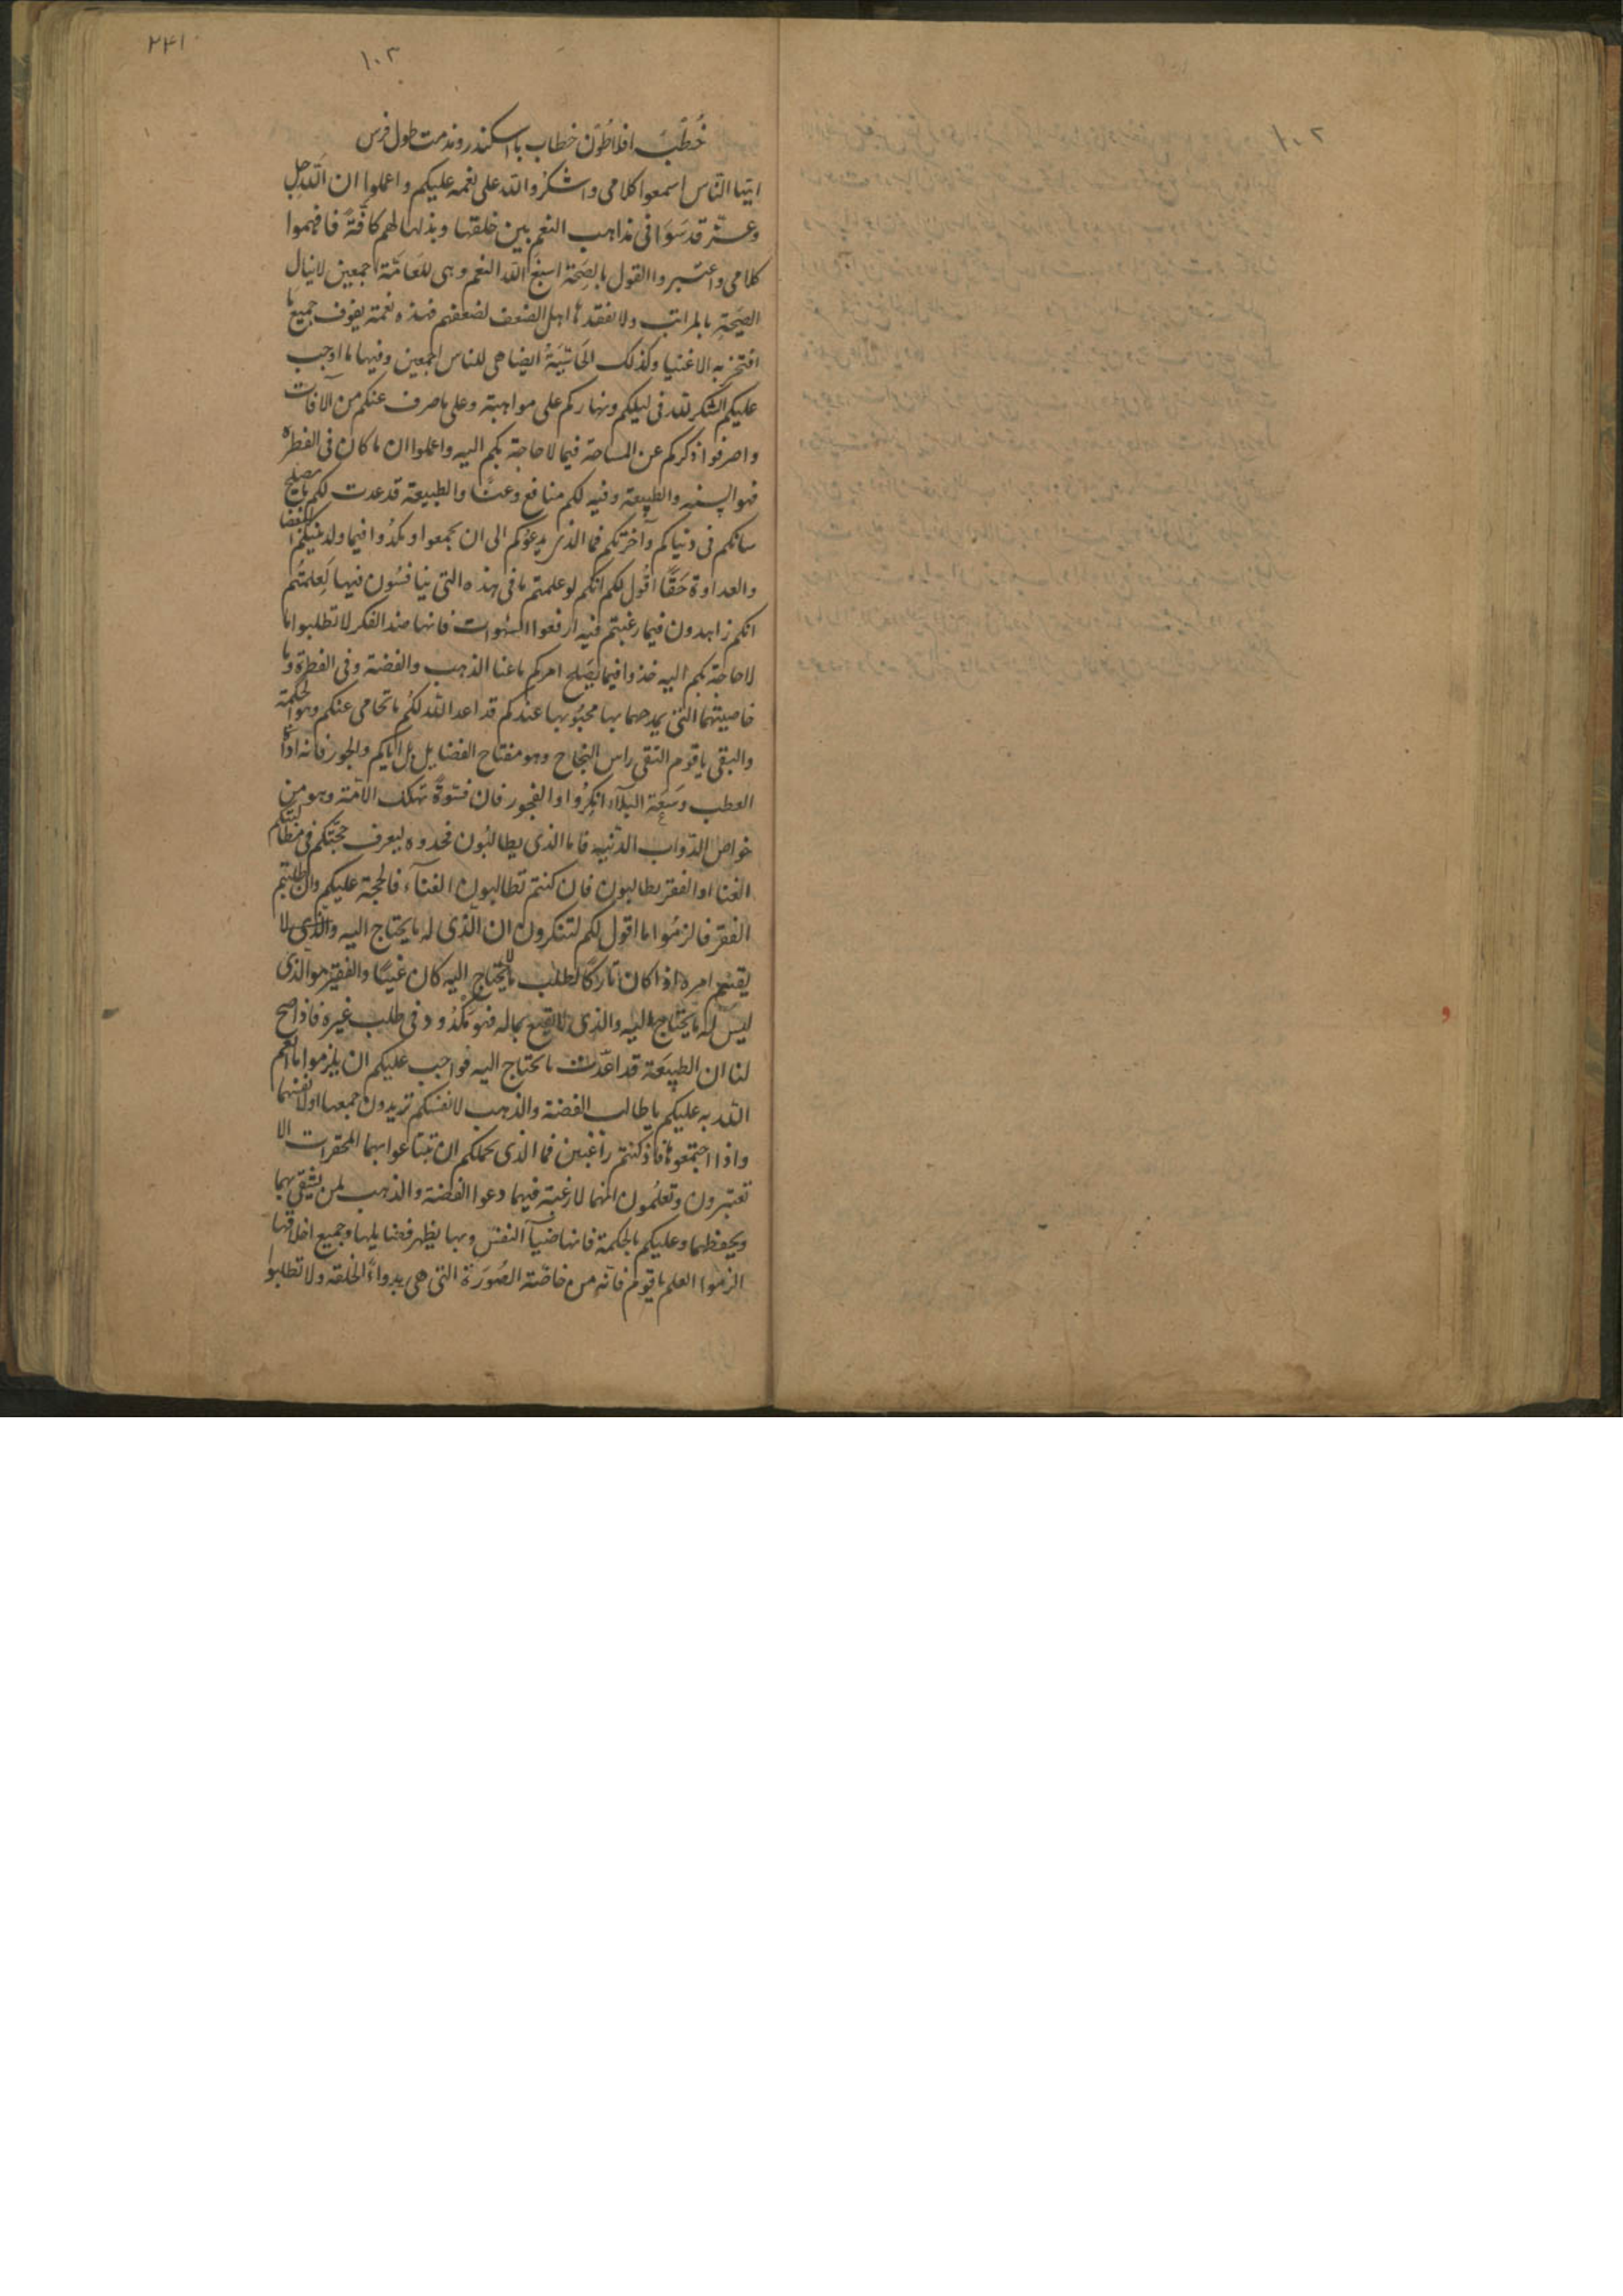 ۲۴۱
۱۰۳
۱۰۲
خُطبَه افلاطُون خطاب باسکندر و مذمت طول فرس
ایّها النّاس اسمعوا کلامی واشکرُوا الله علی نعمه علیکم واعلموا ان الله جل
وعزّ قد سَوَا فی مذاهب النعم بین خلقها وبذلها لهم کافّةً فافهموا
کلامی واعتبروا القول بالصِحّة اسبغ الله النعم وهی للعَامّة اجمعین لاینال
الصِحّة بالمراتب ولا تفقدها اهل الضعف لضعفهم فهذه نعمة یفوق جمیع ما
افتخر به الاغنیا وکذلک ایضا هی للناس اجمعین وفیها ما اوجب
علیکم الشکر لله فی لیلکم ونهارکم علی مواهبة وعلی ما صرف عنکم من الآفات
واصرفوا ذکرکم عن فیما لاحاجة بکم الیه واعلموا ان ما کان فی الفطرة
فهو والطبیعة وفیه لکم منافع والطبیعة قد عدت لکم ما یصلح
شانکم فی دنیاکم وآخرتکم فما الذی یدعوکم الی ان تجمعوا وتکدُوا فیما ولد علیکم البغضا
والعداوة حَقًّا اقُول لکم انکم لو علمتم ما فی هذه التی ینافسُون فیها لَعلمتُم
انکم زاهدون فیما رغبتم فیه ارفعوا الشهوات فانها ضد الفکر لا تطلبوا ما
لا حاجة بکم الیه خذوا فیما یصلح امرکم ما غنا الذهب والفضة وفی الفطرة وما
خاصیتهما التی یمدحهما بها محبُوبها عندکم قد اعد الله لکُم ما تحامی عنکم وهو الحکمة
والتقی یا قوم التقی راس النجاح وهو مفتاح الفضایل ایاکم والجور فانه اداة
العطب وسَعة البلآء انکِرُوا والفجور فان تهلک الامّة وهو من
خواص الدّواب الدنّیه فاما الذی یطالبُون فحدوه لیعرف حجّتکم فی مطالبتکم
الغنا او الفقر یطالبون فان کنتم تطالبون الغنآء فالحجة علیکم وان طلبتم
الفقر فالزمُوا ما اقول لکم لتنکرون ان الذی له ما یحتاج الیه والذی لا
امره اذا کان تارکًا لطلب ما لا یحتاج الیه کان غنیًّا والفقیر هو الذی
لیس له ما یحتاج الیه والذی لا یقنع بماله فهو مَکدُود فی طلب غیره فاذا صح
لنا ان الطبیعَة قد اعدّت ما تحتاج الیه فواجب علیکم ان یلزموا ما انعم
الله به علیکم یا طالب الفضة والذهب لانفسکم تریدون جمعها اولا نفسهما
واذا اجتمعوها فاذ کنتم راغبین فما الذی یحملکم ان تبتاعوا بهما المحقرات الا
تعتبرون وتعلمُون انهما لا رغبة فیهما دعوا الفضة والذهب لمن یشقی بهما
ویحفظهما وعلیکم بالحکمة فانها ضیآ النفس وبها یظهر فضایلها وجمیع اخلاقها
الزموا العلم یا قوم فانّه من خاصّة الصُورَة التی هی بدوآء الخلقه ولا تطلبوا